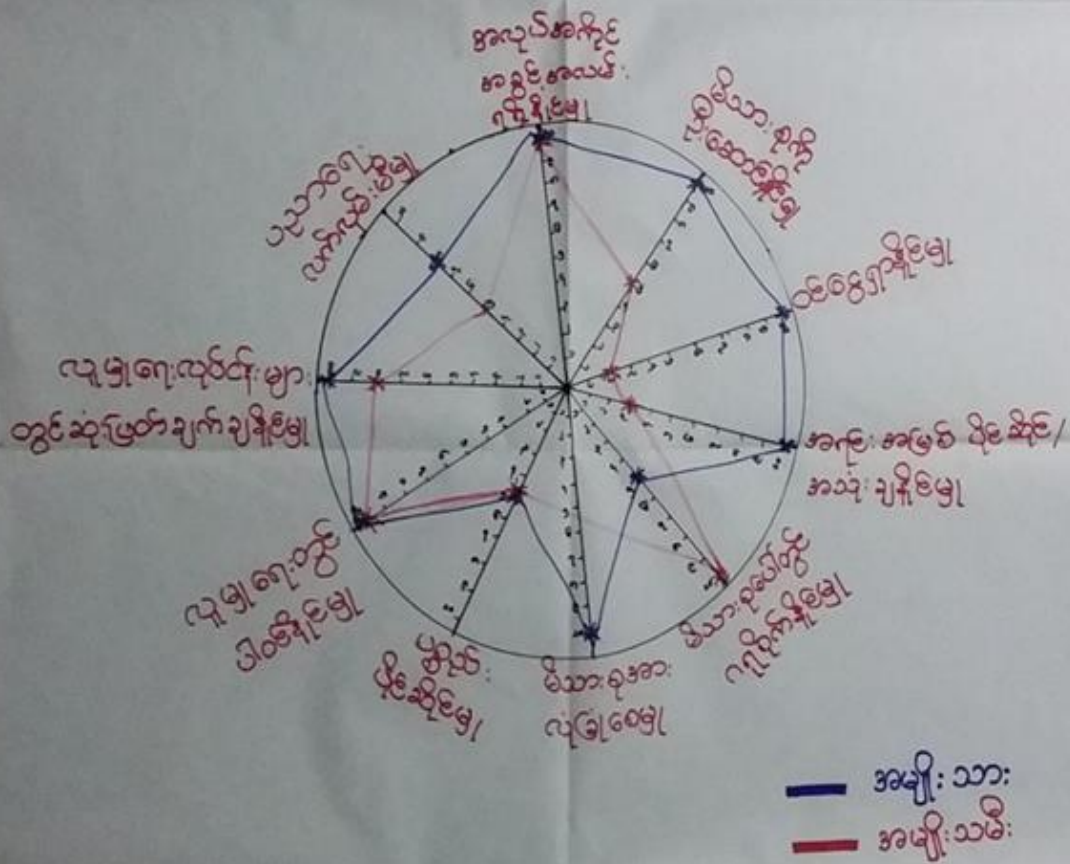 အလုပ်အကိုင်
အခွင့်အလမ်း
ရရှိနိုင်မှု
မိသားစုကို
ဦးဆောင်နိုင်မှု
ဝင်ငွေရှာနိုင်မှု
အရင်းအမြစ် ပိုင်ဆိုင်/
အသုံးချနိုင်မှု
မိသားစုပေါ်တွင်
ဂရုစိုက်နိုင်မှု
မိသားစုအား
လုံခြုံစေမှု
ပိုင်ဆိုင်မှု
လူမှုရေးတွင်
ပါဝင်နိုင်မှု
လူမှုရေးလုပ်ငန်းများ
တွင်ဆုံးဖြတ်ချက်ချနိုင်မှု
ပညာရေး
လက်လှမ်းမီမှု
အမျိုးသား
အမျိုးသမီး